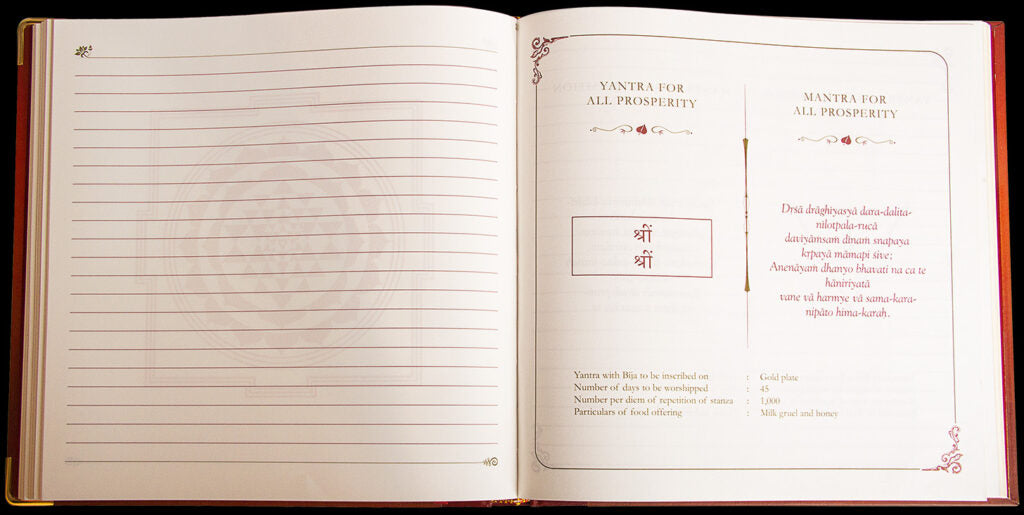 YANTRA FOR
ALL PROSPERITY
श्रीं
श्रीं
MANTRA FOR
ALL PROSPERITY
Dṛśā drāghīyasyā dara-dalita-
nīlotpala-rucā
davīyāmsaṁ dīnaṁ snapaya
kṛpayā māmapi śive;
Anenāyaṁ dhanyo bhavati na ca te
hāniriyatā
vane vā harmye vā sama-kara-
nipāto hima-karaḥ.
Yantra with Bīja to be inscribed on : Gold plate
Number of days to be worshipped : 45
Number per diem of repetition of stanza : 1,000
Particulars of food offering : Milk gruel and honey